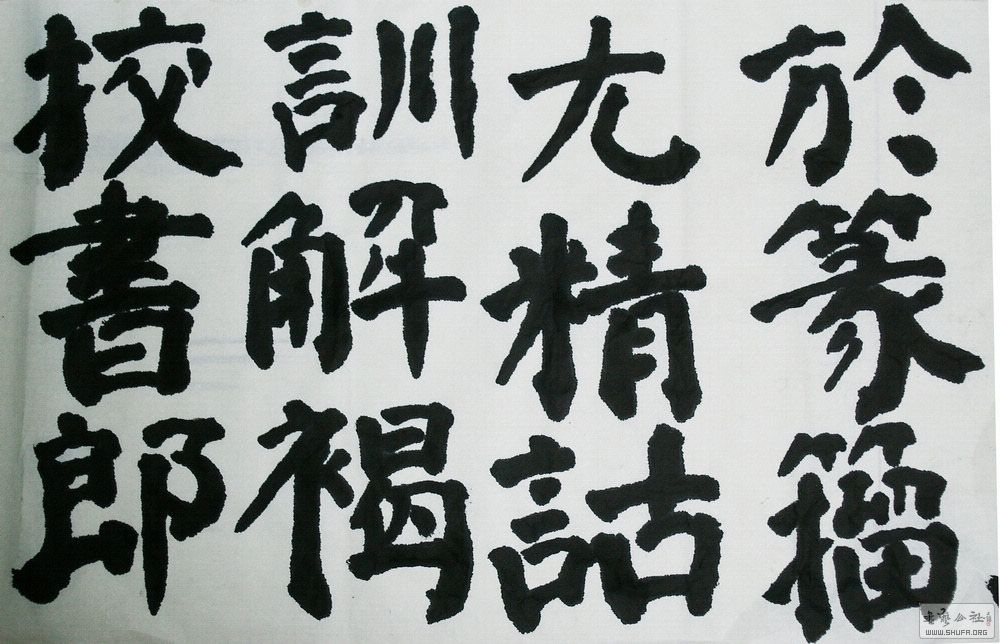 於篆籀
尤精詁
訓解褐
挍書郎
WWW.SHUFA.ORG